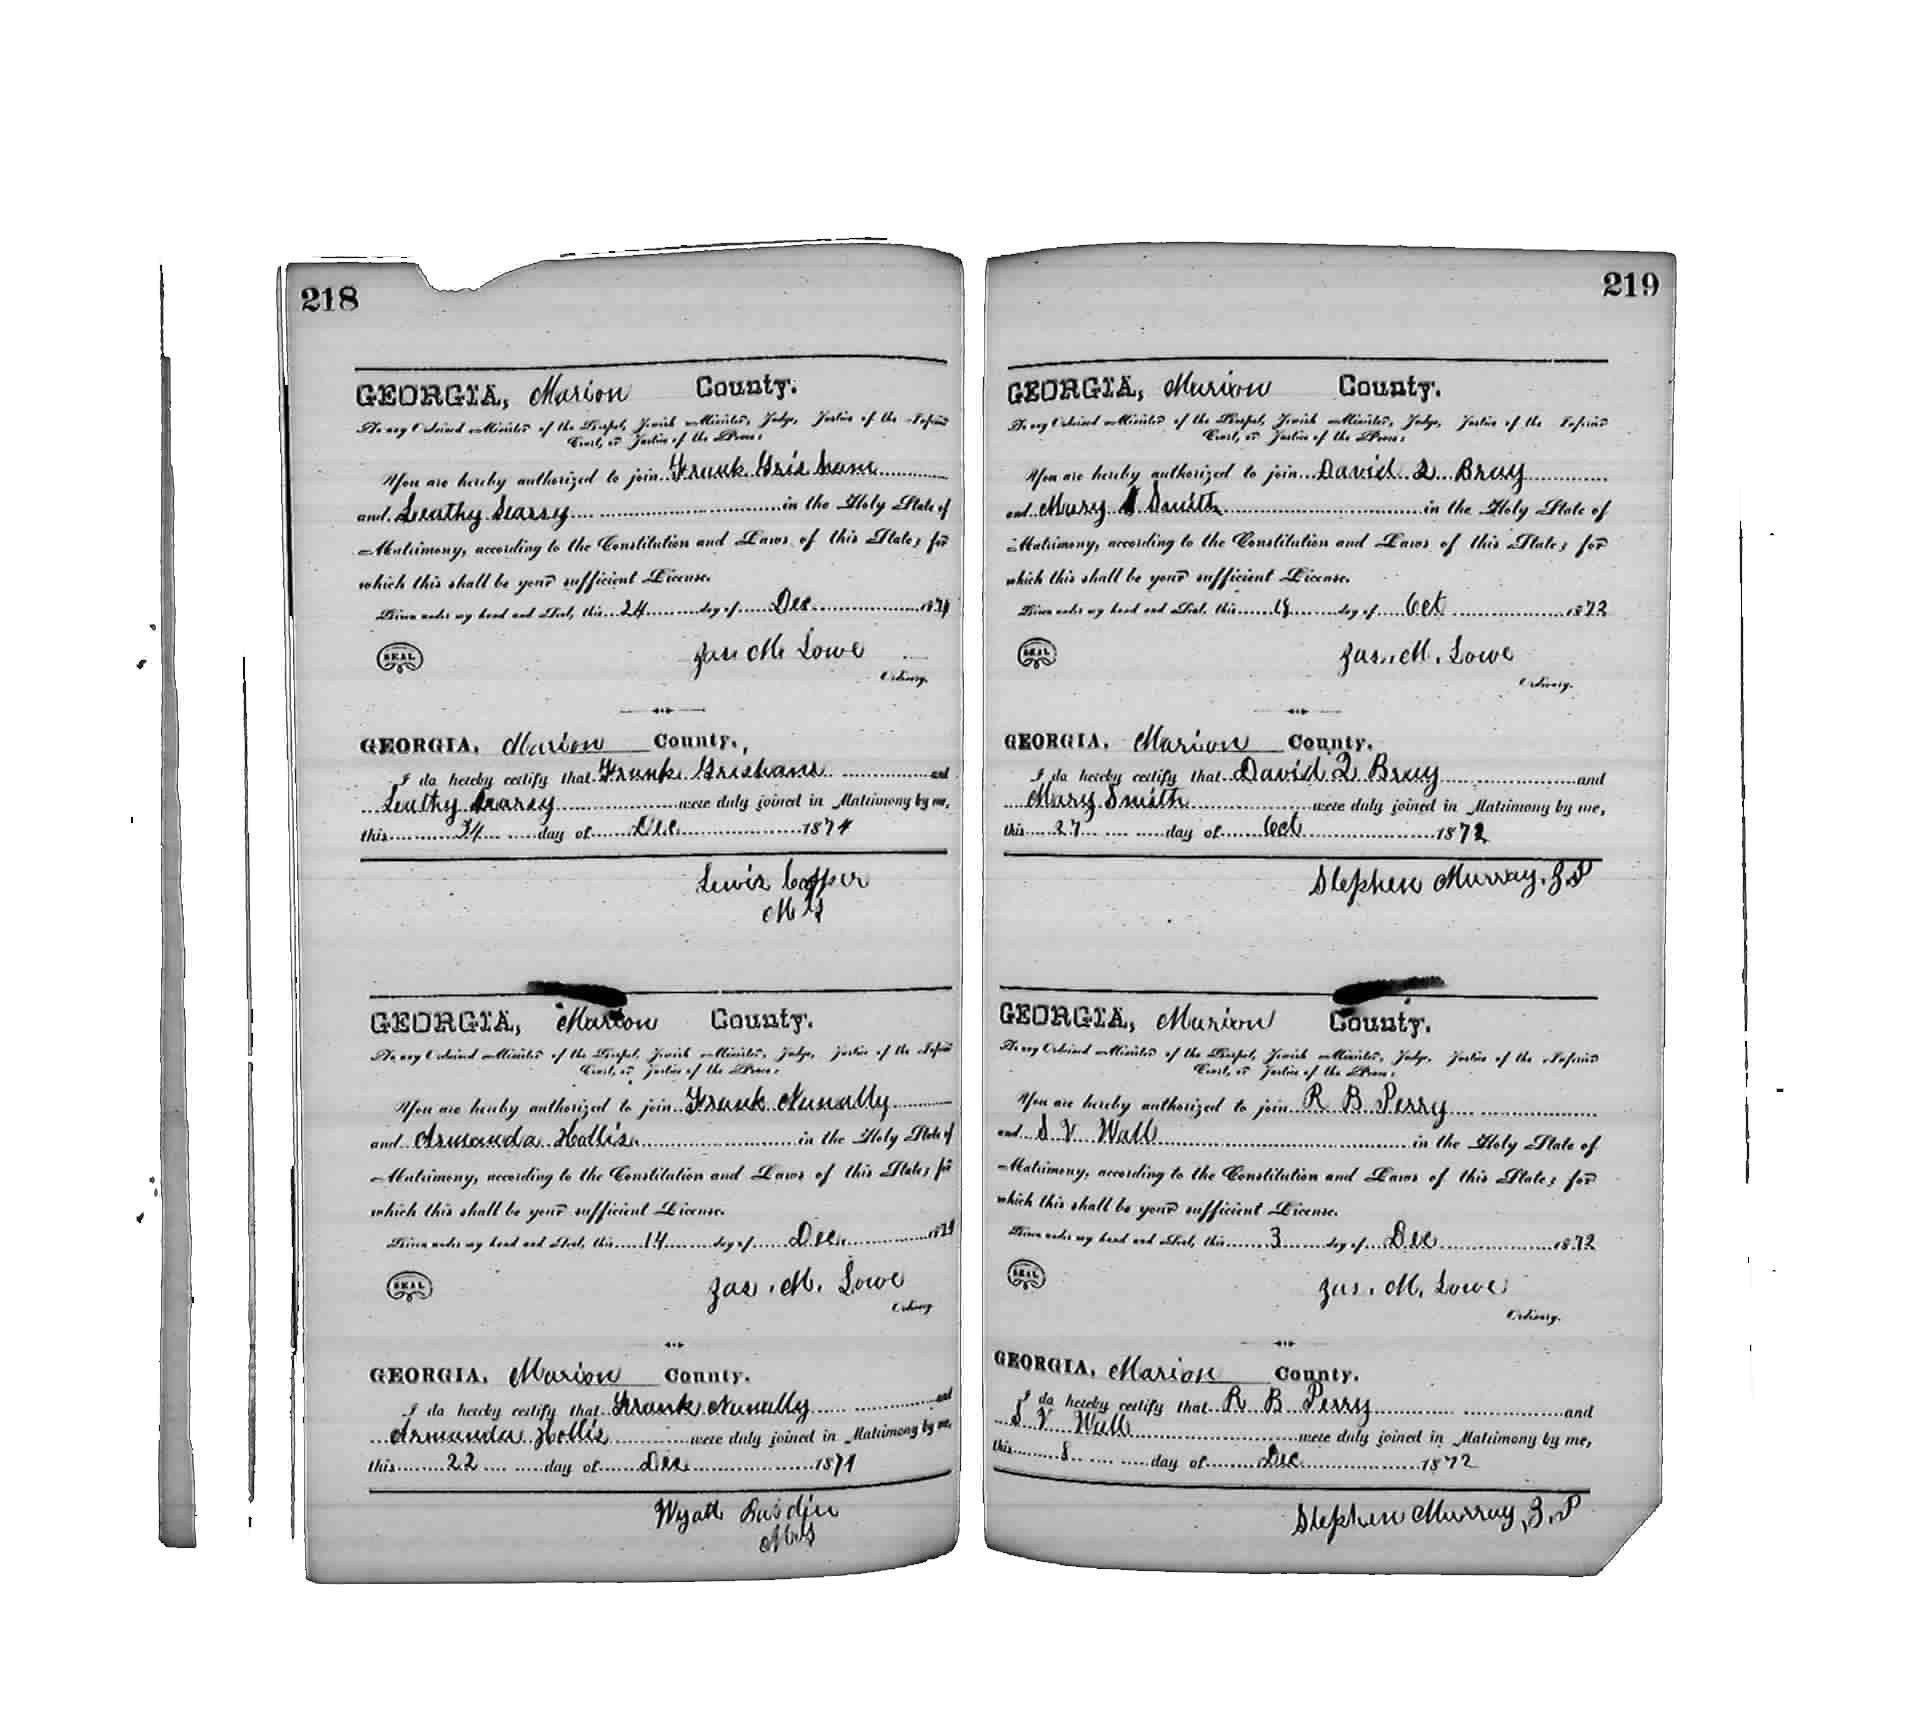 218
GEORGIA, Marion County.
To any Ordained Minister of the Gospel, Jewish Minister, Judge, Justice of the Inferior
Court, or Justice of the Peace:
You are hereby authorized to join Frank Grisham
and Leathy Searsy in the Holy State of
Matrimony, according to the Constitution and Laws of this State; for
which this shall be your sufficient License.
Given under my hand and Seal, this 24 day of Dec 1874
SEAL
Jas M. Lowe
Ordinary.
GEORGIA, Marion County.,
I do hereby certify that Frank Grisham and
Leathy Searsy were duly joined in Matrimony by me,
this 34 day of Dec 1874
Lewis
M G
GEORGIA, Marion County.
To any Ordained Minister of the Gospel, Jewish Minister, Judge, Justice of the Inferior
Court, or Justice of the Peace:
You are hereby authorized to join Frank Nunally
and Armanda Hollis in the Holy State of
Matrimony, according to the Constitution and Laws of this State; for
which this shall be your sufficient License.
Given under my hand and Seal, this 14 day of Dec.
SEAL
Jas. M. Lowe
Ordinary
GEORGIA, Marion County.
I do hereby certify that Frank Nunally and
Armanda Hollis were duly joined in Matrimony by me,
this 22 day of Dec 1871
Wyatt
MG
219
GEORGIA, Marion County.
To any Ordained Minister of the Gospel, Jewish Minister, Judge, Justice of the Inferior
Court, or Justice of the Peace:
You are hereby authorized to join David Q Bray
and Mary Smith in the Holy State of
Matrimony, according to the Constitution and Laws of this State; for
which this shall be your sufficient License.
Given under my hand and Seal, this 18 day of Oct 1872
SEAL
Jas. M. Lowe
Ordinary.
GEORGIA, Marion County.
I do hereby certify that David Q Bray and
Mary Smith were duly joined in Matrimony by me,
this 27 day of Oct 1872
Stephen Murray, J.P
GEORGIA, Marion County.
To any Ordained Minister of the Gospel, Jewish Minister, Judge, Justice of the Inferior
Court, or Justice of the Peace:
You are hereby authorized to join R B Perry
and S V Wall in the Holy State of
Matrimony, according to the Constitution and Laws of this State; for
which this shall be your sufficient License.
Given under my hand and Seal, this 3 day of Dec 1872
SEAL
Jas. M. Lowe
Ordinary.
GEORGIA, Marion County.
I do hereby certify that R B Perry and
S V Wall were duly joined in Matrimony by me,
this 8 day of Dec 1872
Stephen Murray, J.P